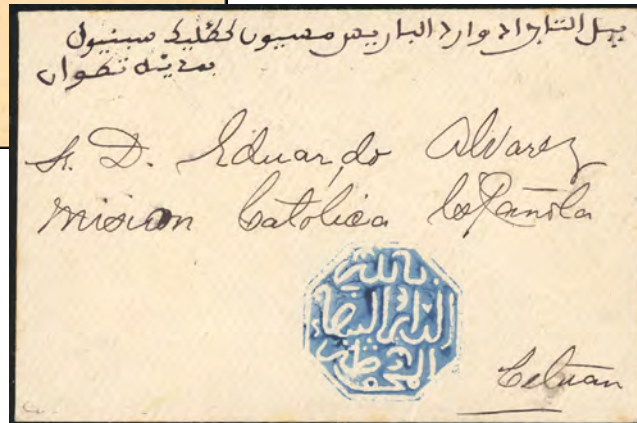 التاجر ادوارد الباريس مسيون كطليك سبنيول
بمدينة تطوان
Sr. D. Eduardo Alvarez
mision Católica Española
الدار البيضاء
Tetuan